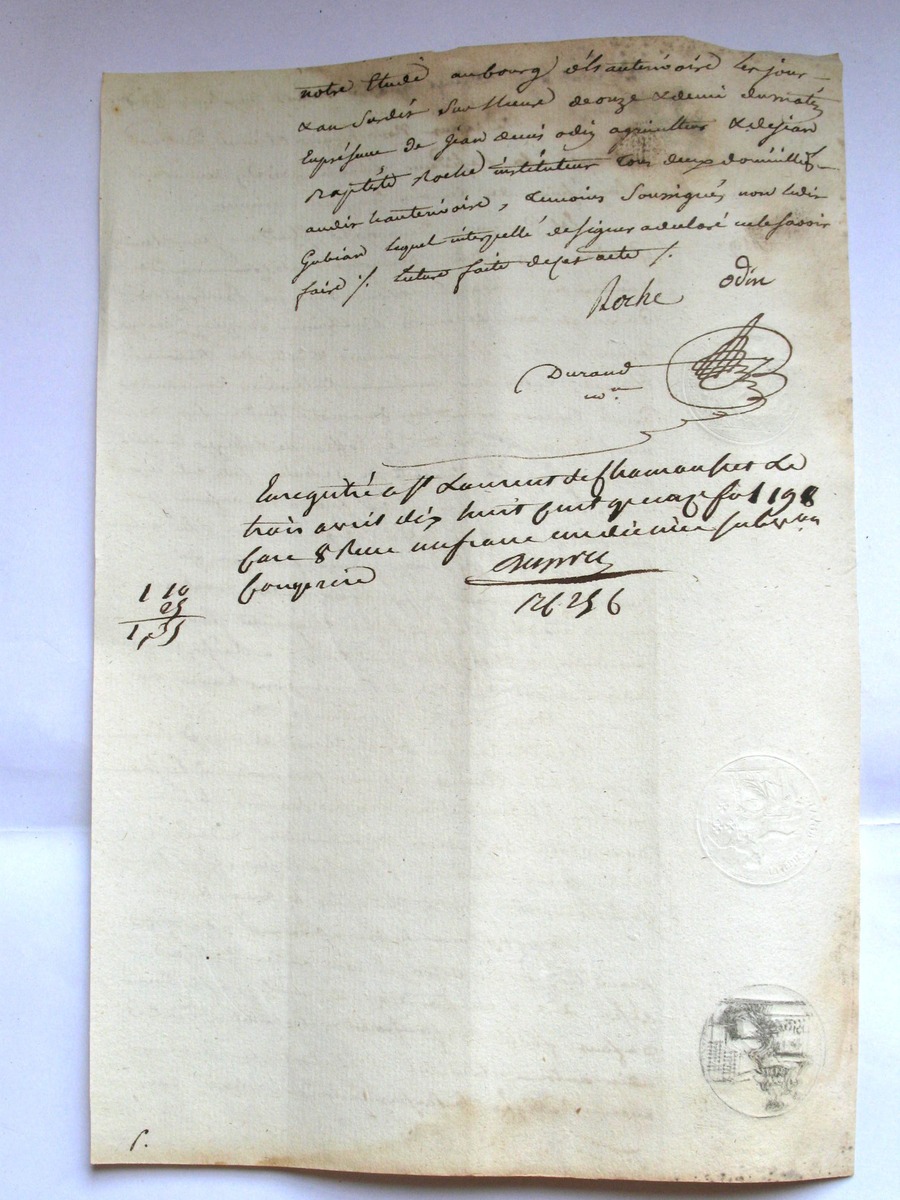 notre Etude au bourg d'hauterivoire les jour
& an susdit sur lheure de onze & demi du matin
En présence de jean denis odin agriculteur & de jean
Baptiste Roche instituteur tous deux domiciliés
audit hauterivoire, temoins soussignés non ledit
Gubian lequel interpellé de signer a declaré ne le savoir
faire %. lecture faite de cet acte %.
Roche odin
Durand
nre
Enregistré a st Laurent de Chamousset Le
trois avril dix huit cent quinze fol 198
Case 8 Reçu un franc un decime subvon
Comprise
1 10
25
1,35